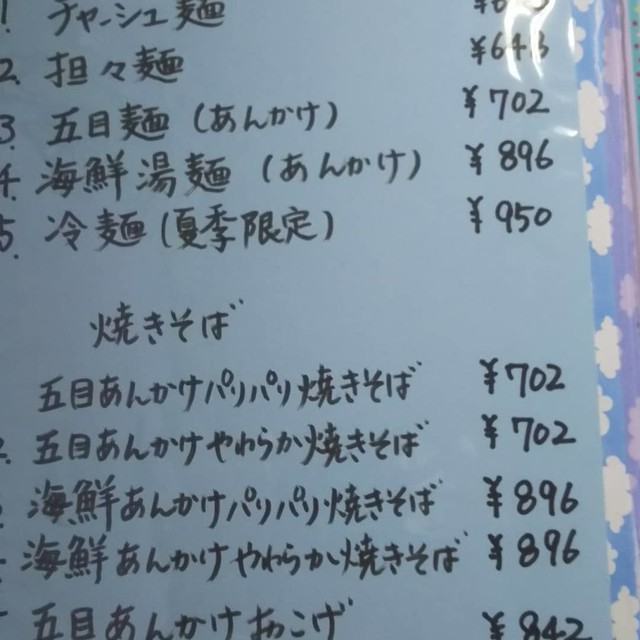 1. チャーシュー麺
2. 担々麺 ¥648
3 五目麺 (あんかけ) ¥702
4. 海鮮湯麺 (あんかけ) ¥896
5. 冷麺 (夏季限定) ¥950
焼きそば
五目あんかけパリパリ焼きそば ¥702
2. 五目あんかけやわらか焼きそば ¥702
海鮮あんかけパリパリ焼きそば ¥896
海鮮あんかけやわらか焼きそば ¥896
五目あんかけおこげ ¥842